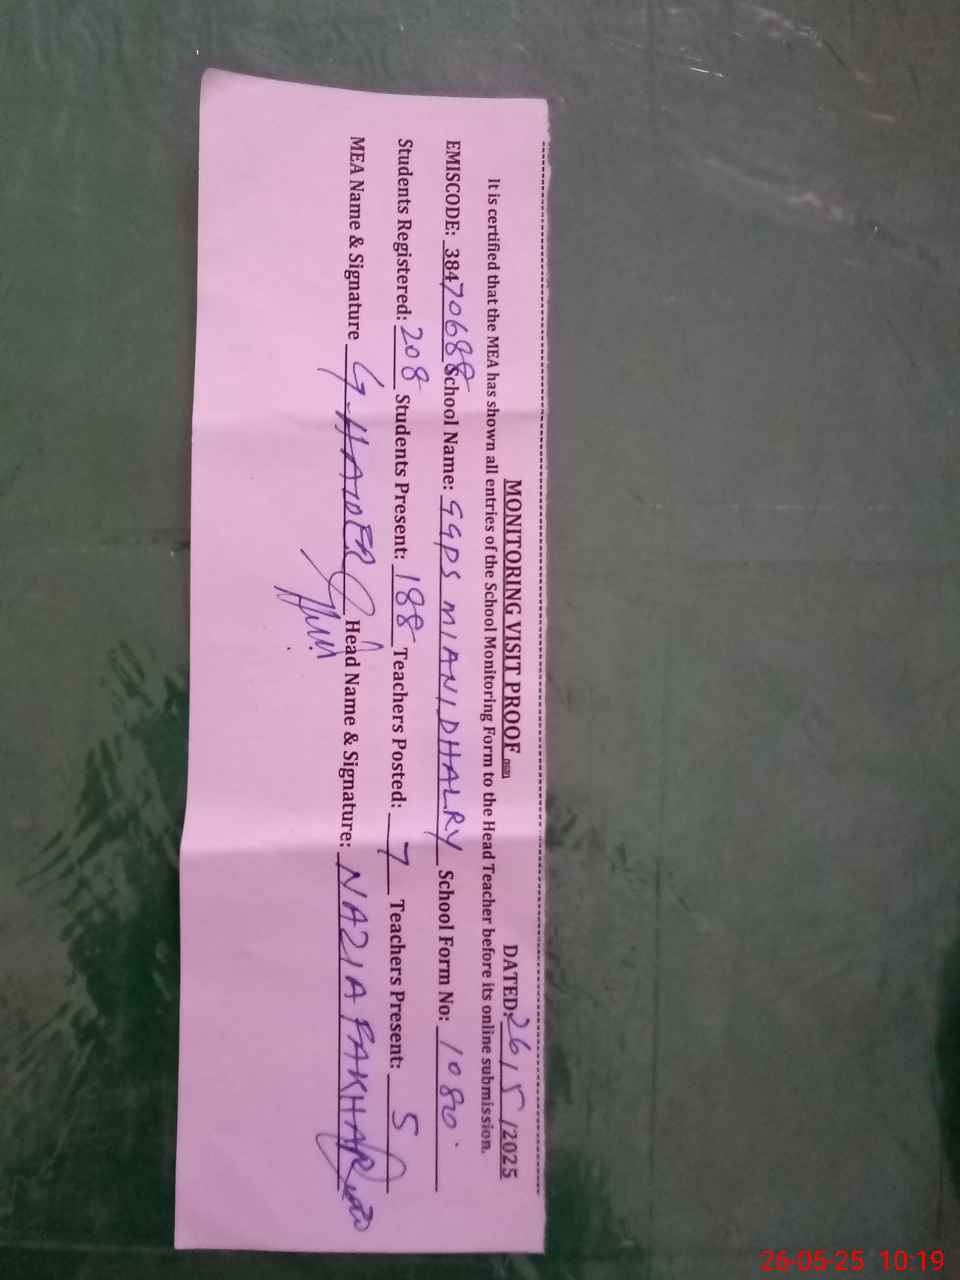 MONITORING VISIT PROOF DATED: 26/5/2025
It is certified that the MEA has shown all entries of the School Monitoring Form to the Head Teacher before its online submission.
EMISCODE: 38470688 School Name: GGPS MIANI DHALRY School Form No: 1080.
Students Registered: 208 Students Present: 188 Teachers Posted: 7 Teachers Present: 5
MEA Name & Signature G. HAIDER Head Name & Signature: NAZIA FAKHAR
26-05-25 10:19